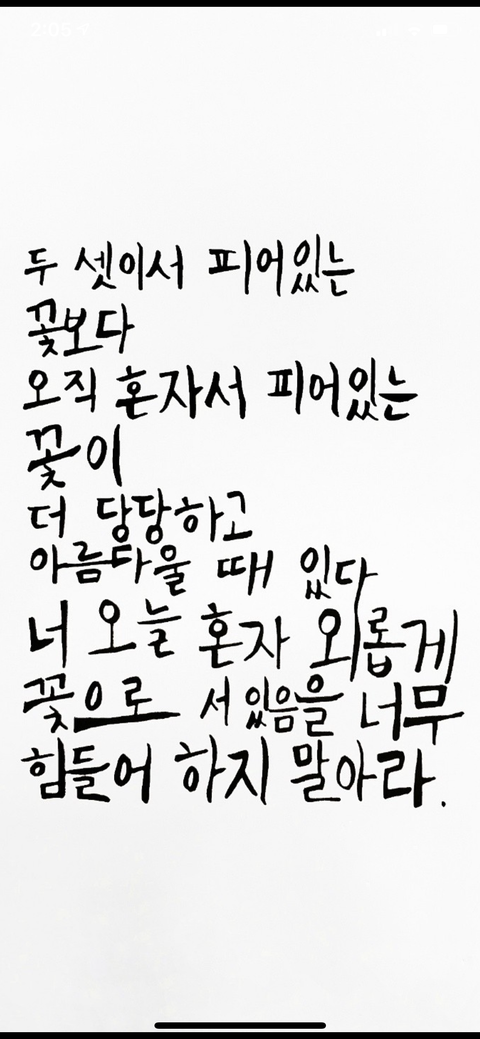 2:05
두 셋이서 피어있는
꽃보다
오직 혼자서 피어있는
꽃이
더 당당하고
아름다울 때 있다
너 오늘 혼자 외롭게
꽃으로 서있음을 너무
힘들어 하지 말아라.